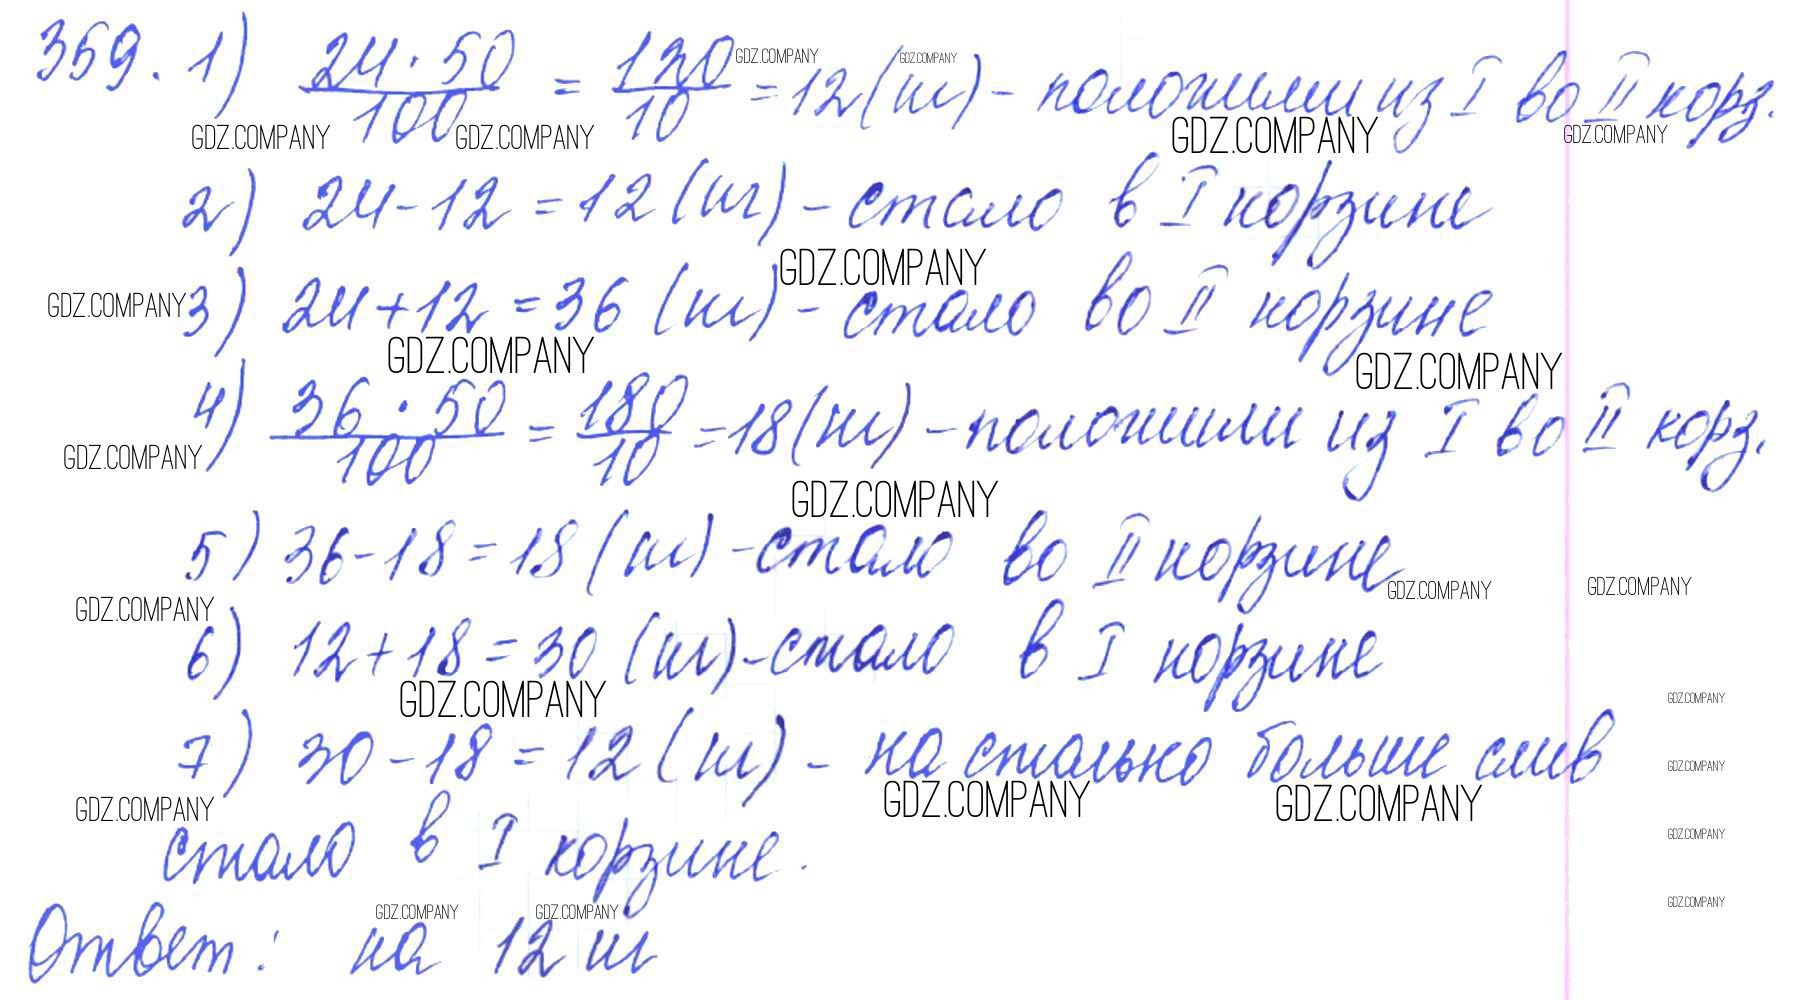 359. 1) 24 · 50 / 100 = 120 / 10 = 12 (кг) – положили из I во II корз.
GDZ.COMPANY GDZ.COMPANY
GDZ.COMPANY GDZ.COMPANY GDZ.COMPANY GDZ.COMPANY
2) 24 – 12 = 12 (кг) – стало в I корзине
GDZ.COMPANY
3) 24 + 12 = 36 (кг) – стало во II корзине
GDZ.COMPANY
GDZ.COMPANY GDZ.COMPANY
4) 36 · 50 / 100 = 180 / 10 = 18 (кг) – положили из I во II корз.
GDZ.COMPANY
GDZ.COMPANY
5) 36 – 18 = 18 (кг) – стало во II корзине
GDZ.COMPANY GDZ.COMPANY
GDZ.COMPANY
6) 12 + 18 = 30 (кг) – стало в I корзине
GDZ.COMPANY GDZ.COMPANY
7) 30 – 18 = 12 (кг) – на столько больше слив
GDZ.COMPANY
GDZ.COMPANY GDZ.COMPANY GDZ.COMPANY
стало в I корзине.
GDZ.COMPANY
GDZ.COMPANY GDZ.COMPANY GDZ.COMPANY
Ответ: на 12 кг